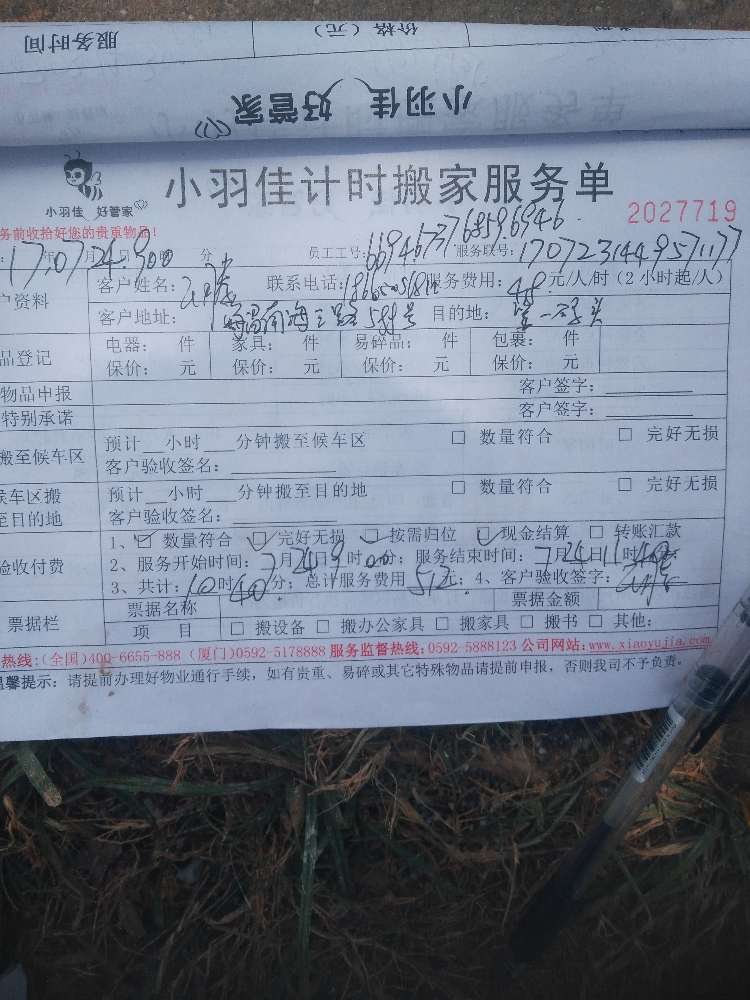 服务时间 价格（元）
小羽佳 好管家
小羽佳 好管家
小羽佳计时搬家服务单
2027719
务前收拾好您的贵重物品！
17年07月24日900时 分 员工工号： 服务联号：
户资料 客户姓名： 联系电话： 服务费用：48元/人/时（2小时起/人）
客户地址： 目的地：第一码头
品登记 电器： 件 家具： 件 易碎品： 件 包裹： 件
保价： 元 保价： 元 保价： 元 保价： 元
物品申报 客户签字：
特别承诺 客户签字：
搬至候车区 预计 小时 分钟搬至候车区 □ 数量符合 □ 完好无损
客户验收签名：
候车区搬至目的地 预计 小时 分钟搬至目的地 □ 数量符合 □ 完好无损
客户验收签名：
验收付费 1、☑ 数量符合 ☑ 完好无损 ☑ 按需归位 ☑ 现金结算 □ 转账汇款
2、服务开始时间：7月24日9时00分；服务结束时间：7月24日11时40分
3、共计：10时40分；总计服务费用512元；4、客户验收签字：
票据栏 票据名称 票据金额
项 目 □ 搬设备 □ 搬办公家具 □ 搬家具 □ 搬书 □ 其他：
热线：（全国）400-6655-888（厦门）0592-5178888 服务监督热线：0592-5888123 公司网站：www.xiaoyujia.com
温馨提示：请提前办理好物业通行手续，如有贵重、易碎或其它特殊物品请提前申报，否则我司不予负责。